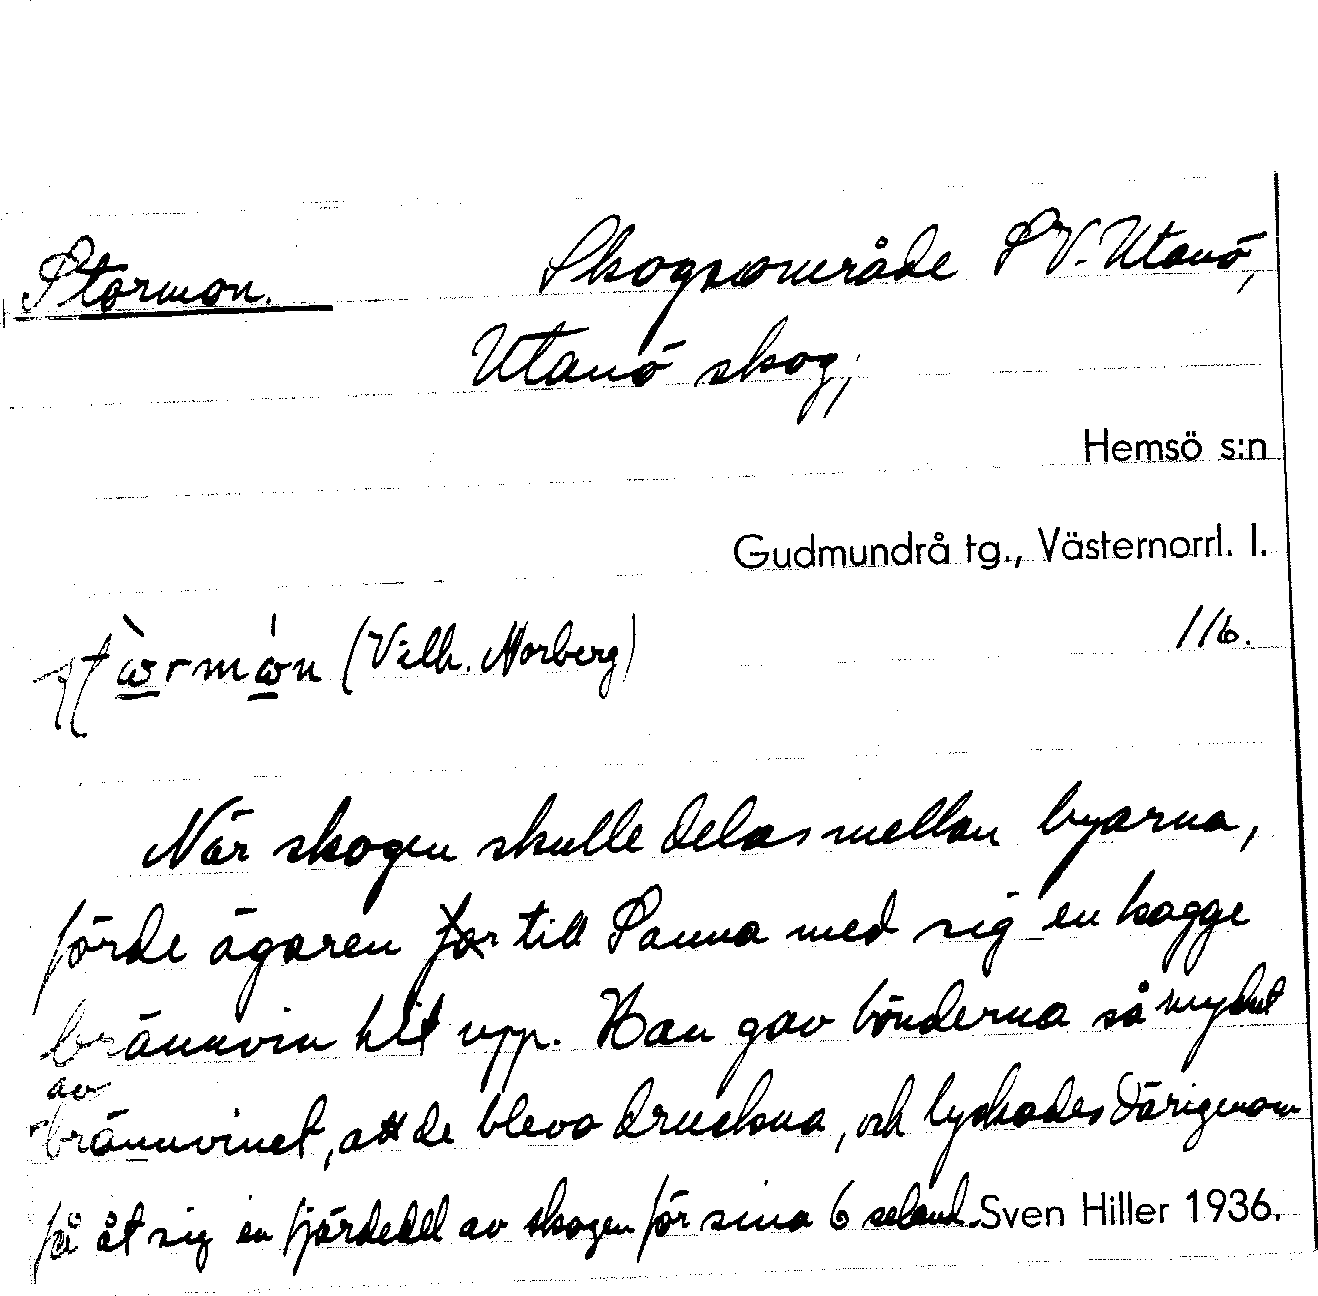 Stormon. Skogsområde SV. Utanö,
Utanö skog,
Hemsö s:n
Gudmundrå tg., Västernorrl. l.
(Vilh. Norberg) 116.
När skogen skulle delas mellan byarna,
förde ägaren till Sanna med sig en kagge
brännvin hit upp. Han gav bönderna så mycket
av
brännvinet, att de blevo druckna, och lyckades därigenom
få åt sig en fjärdedel av skogen för sina 6 seland. Sven Hiller 1936.